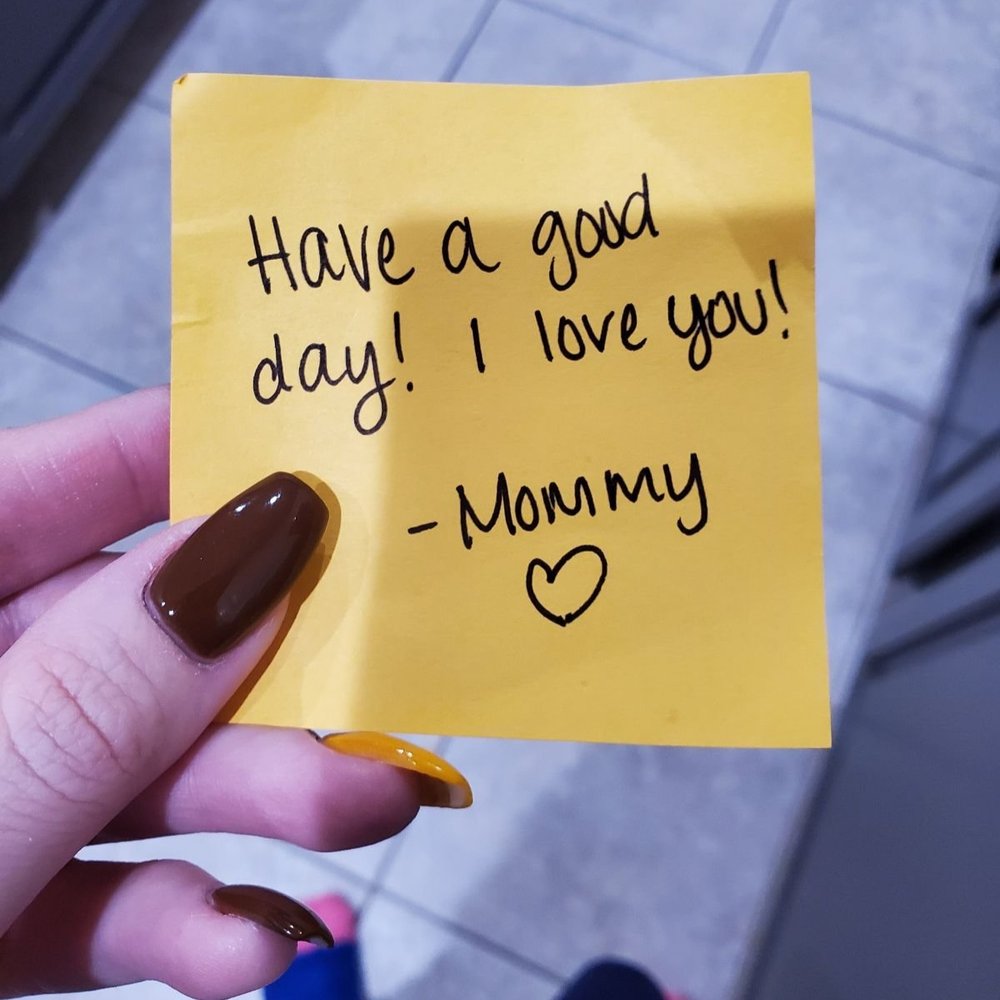 Have a good
day! I love you!
-Mommy
♡